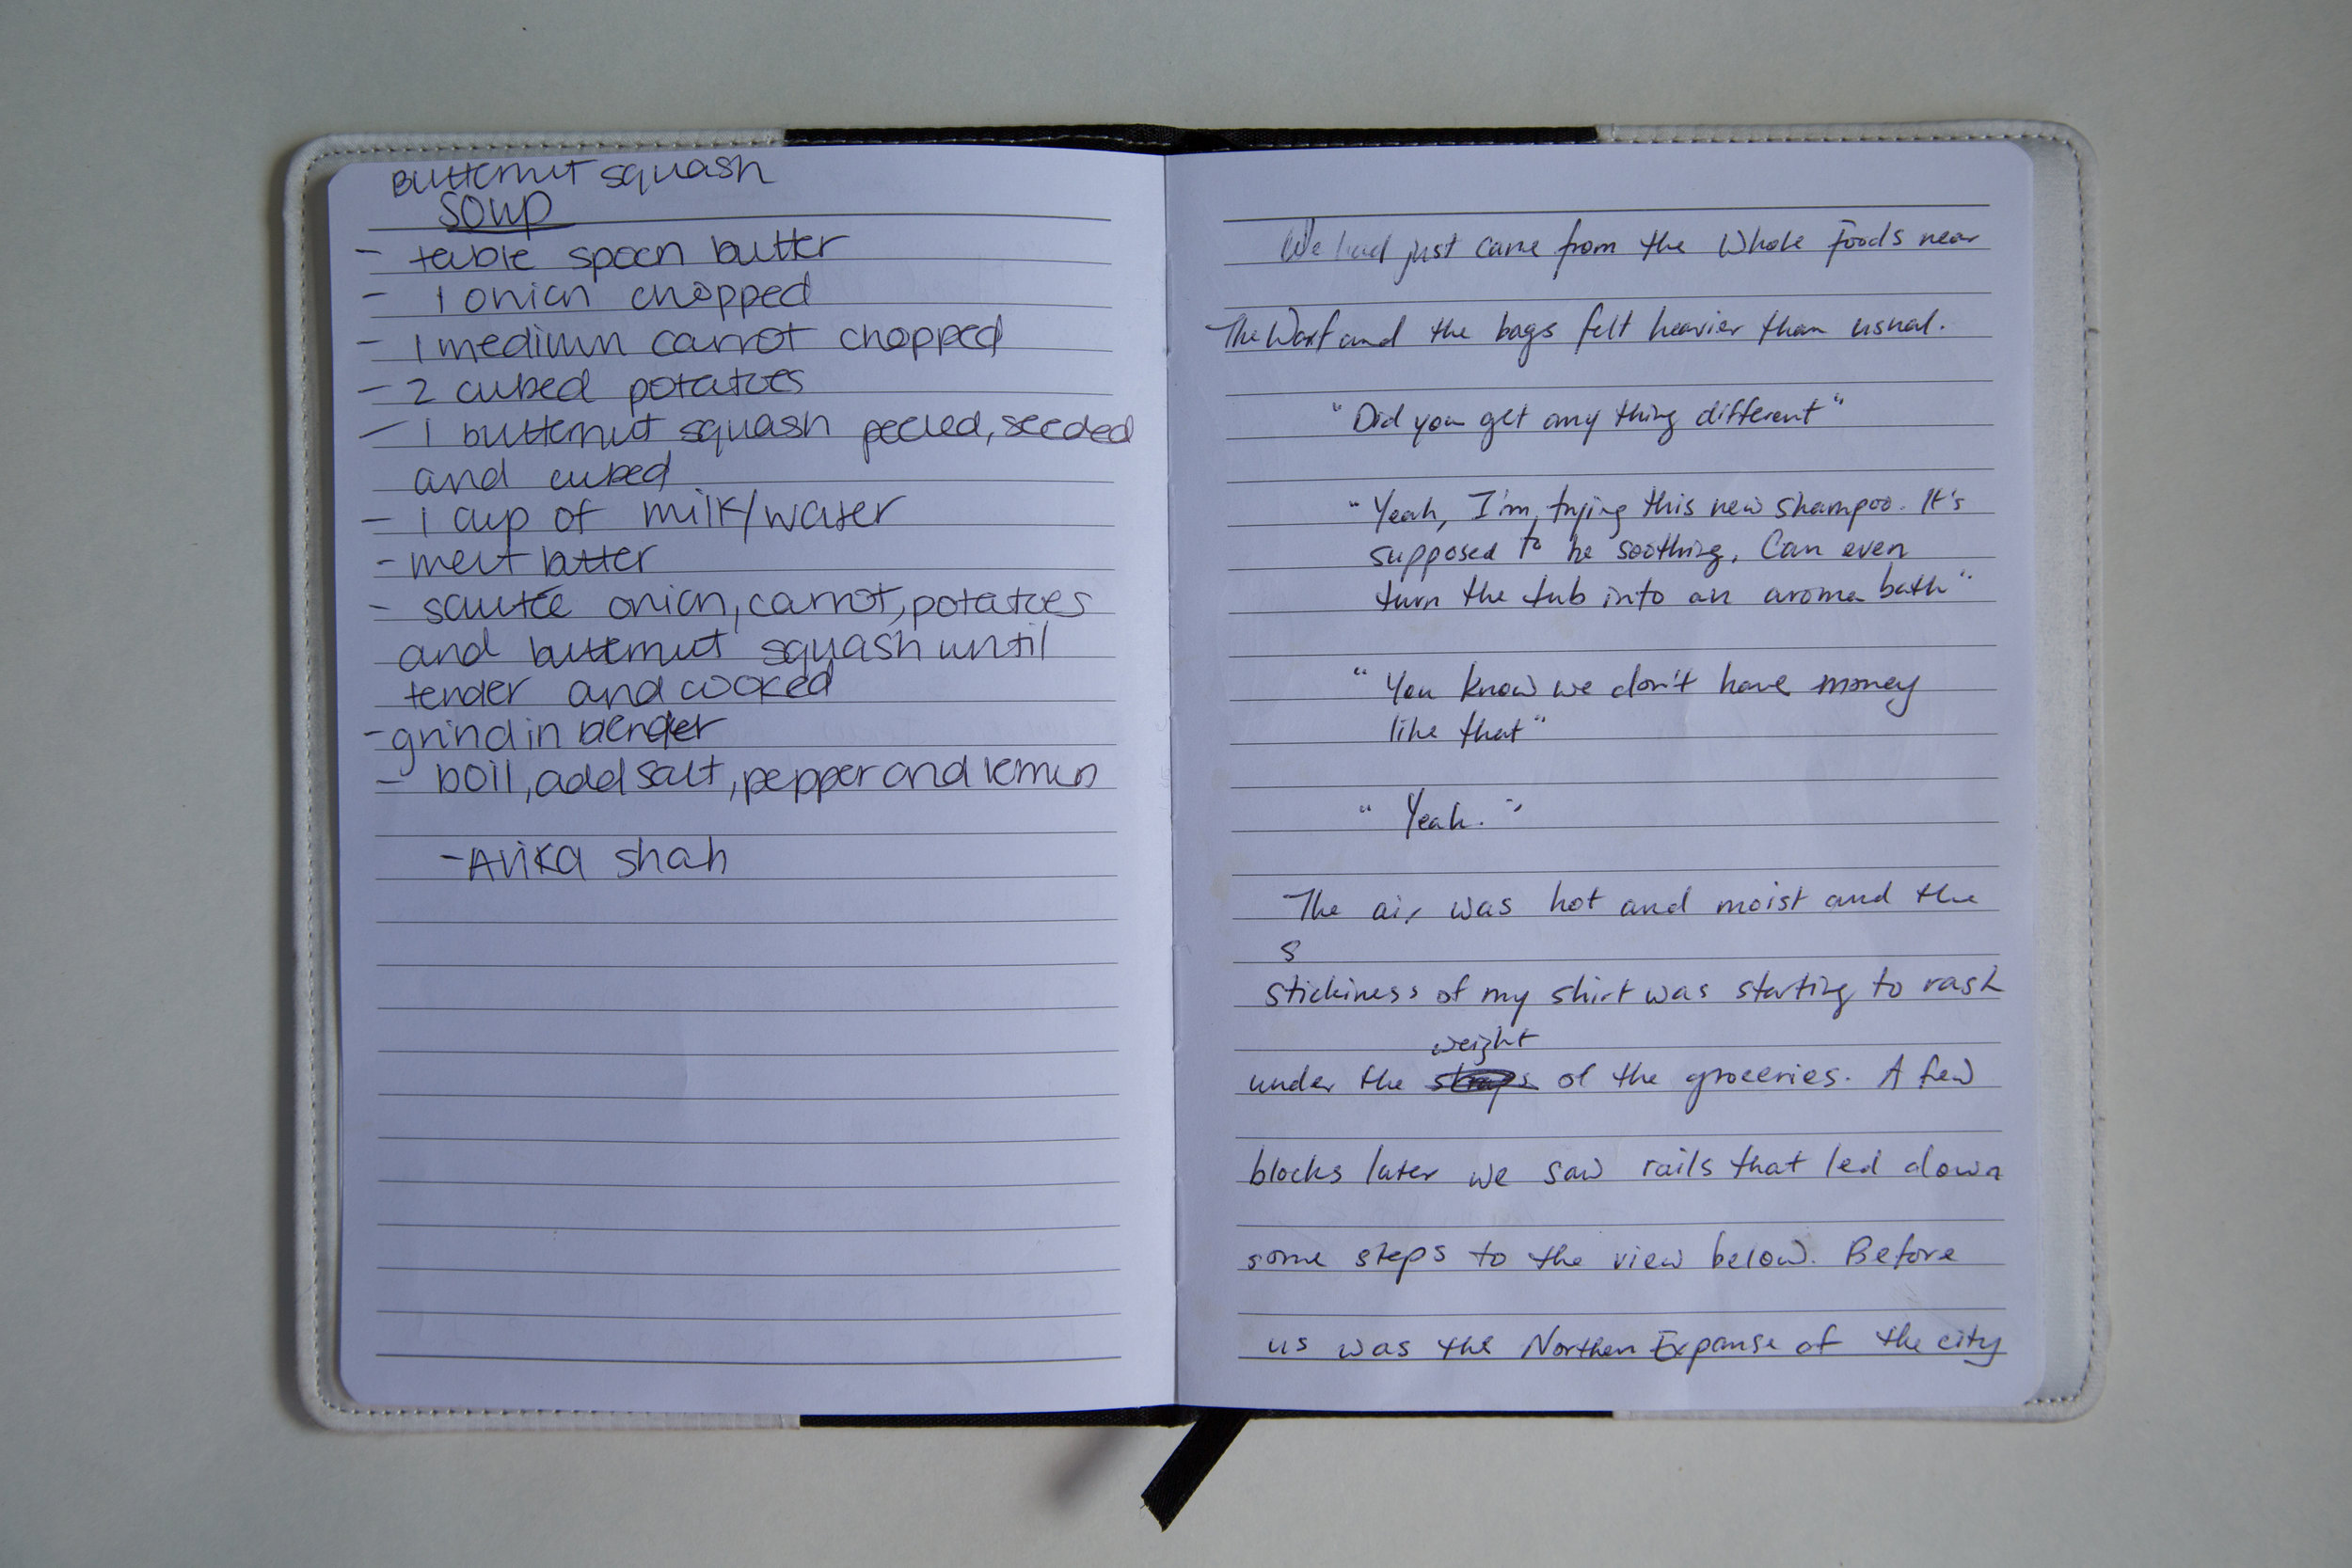 Butternut squash
soup
- table spoon butter
- 1 onion chopped
- 1 medium carrot chopped
- 2 cubed potatoes
- 1 butternut squash peeled, seeded
and cubed
- 1 cup of milk/water
- melt butter
- sautée onion, carrot, potatoes
and butternut squash until
tender and cooked
- grind in blender
- boil, add salt, pepper and lemon
- Avika Shah
We had just came from the Whole Foods near
The Warf and the bags felt heavier than usual.
"Did you get any thing different"
"Yeah, I'm trying this new shampoo. It's
supposed to be soothing. Can even
turn the tub into an aroma bath"
"You know we don't have money
like that"
"Yeah."
The air was hot and moist and the
S
stickiness of my shirt was starting to rash
weight
under the straps of the groceries. A few
blocks later we saw rails that led down
some steps to the view below. Before
us was the Northen Expanse of the city